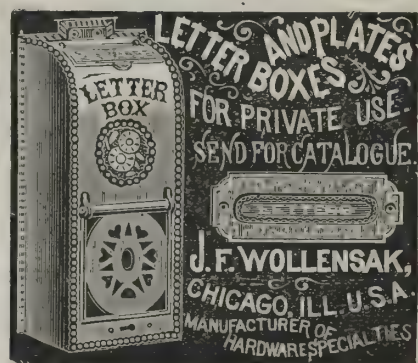 LETTER BOXES
AND PLATES
FOR PRIVATE USE.
SEND FOR CATALOGUE.
LETTER
BOX
LETTERS
J. F. WOLLENSAK,
CHICAGO, ILL. U.S.A.
MANUFACTURER OF
HARDWARE SPECIALTIES